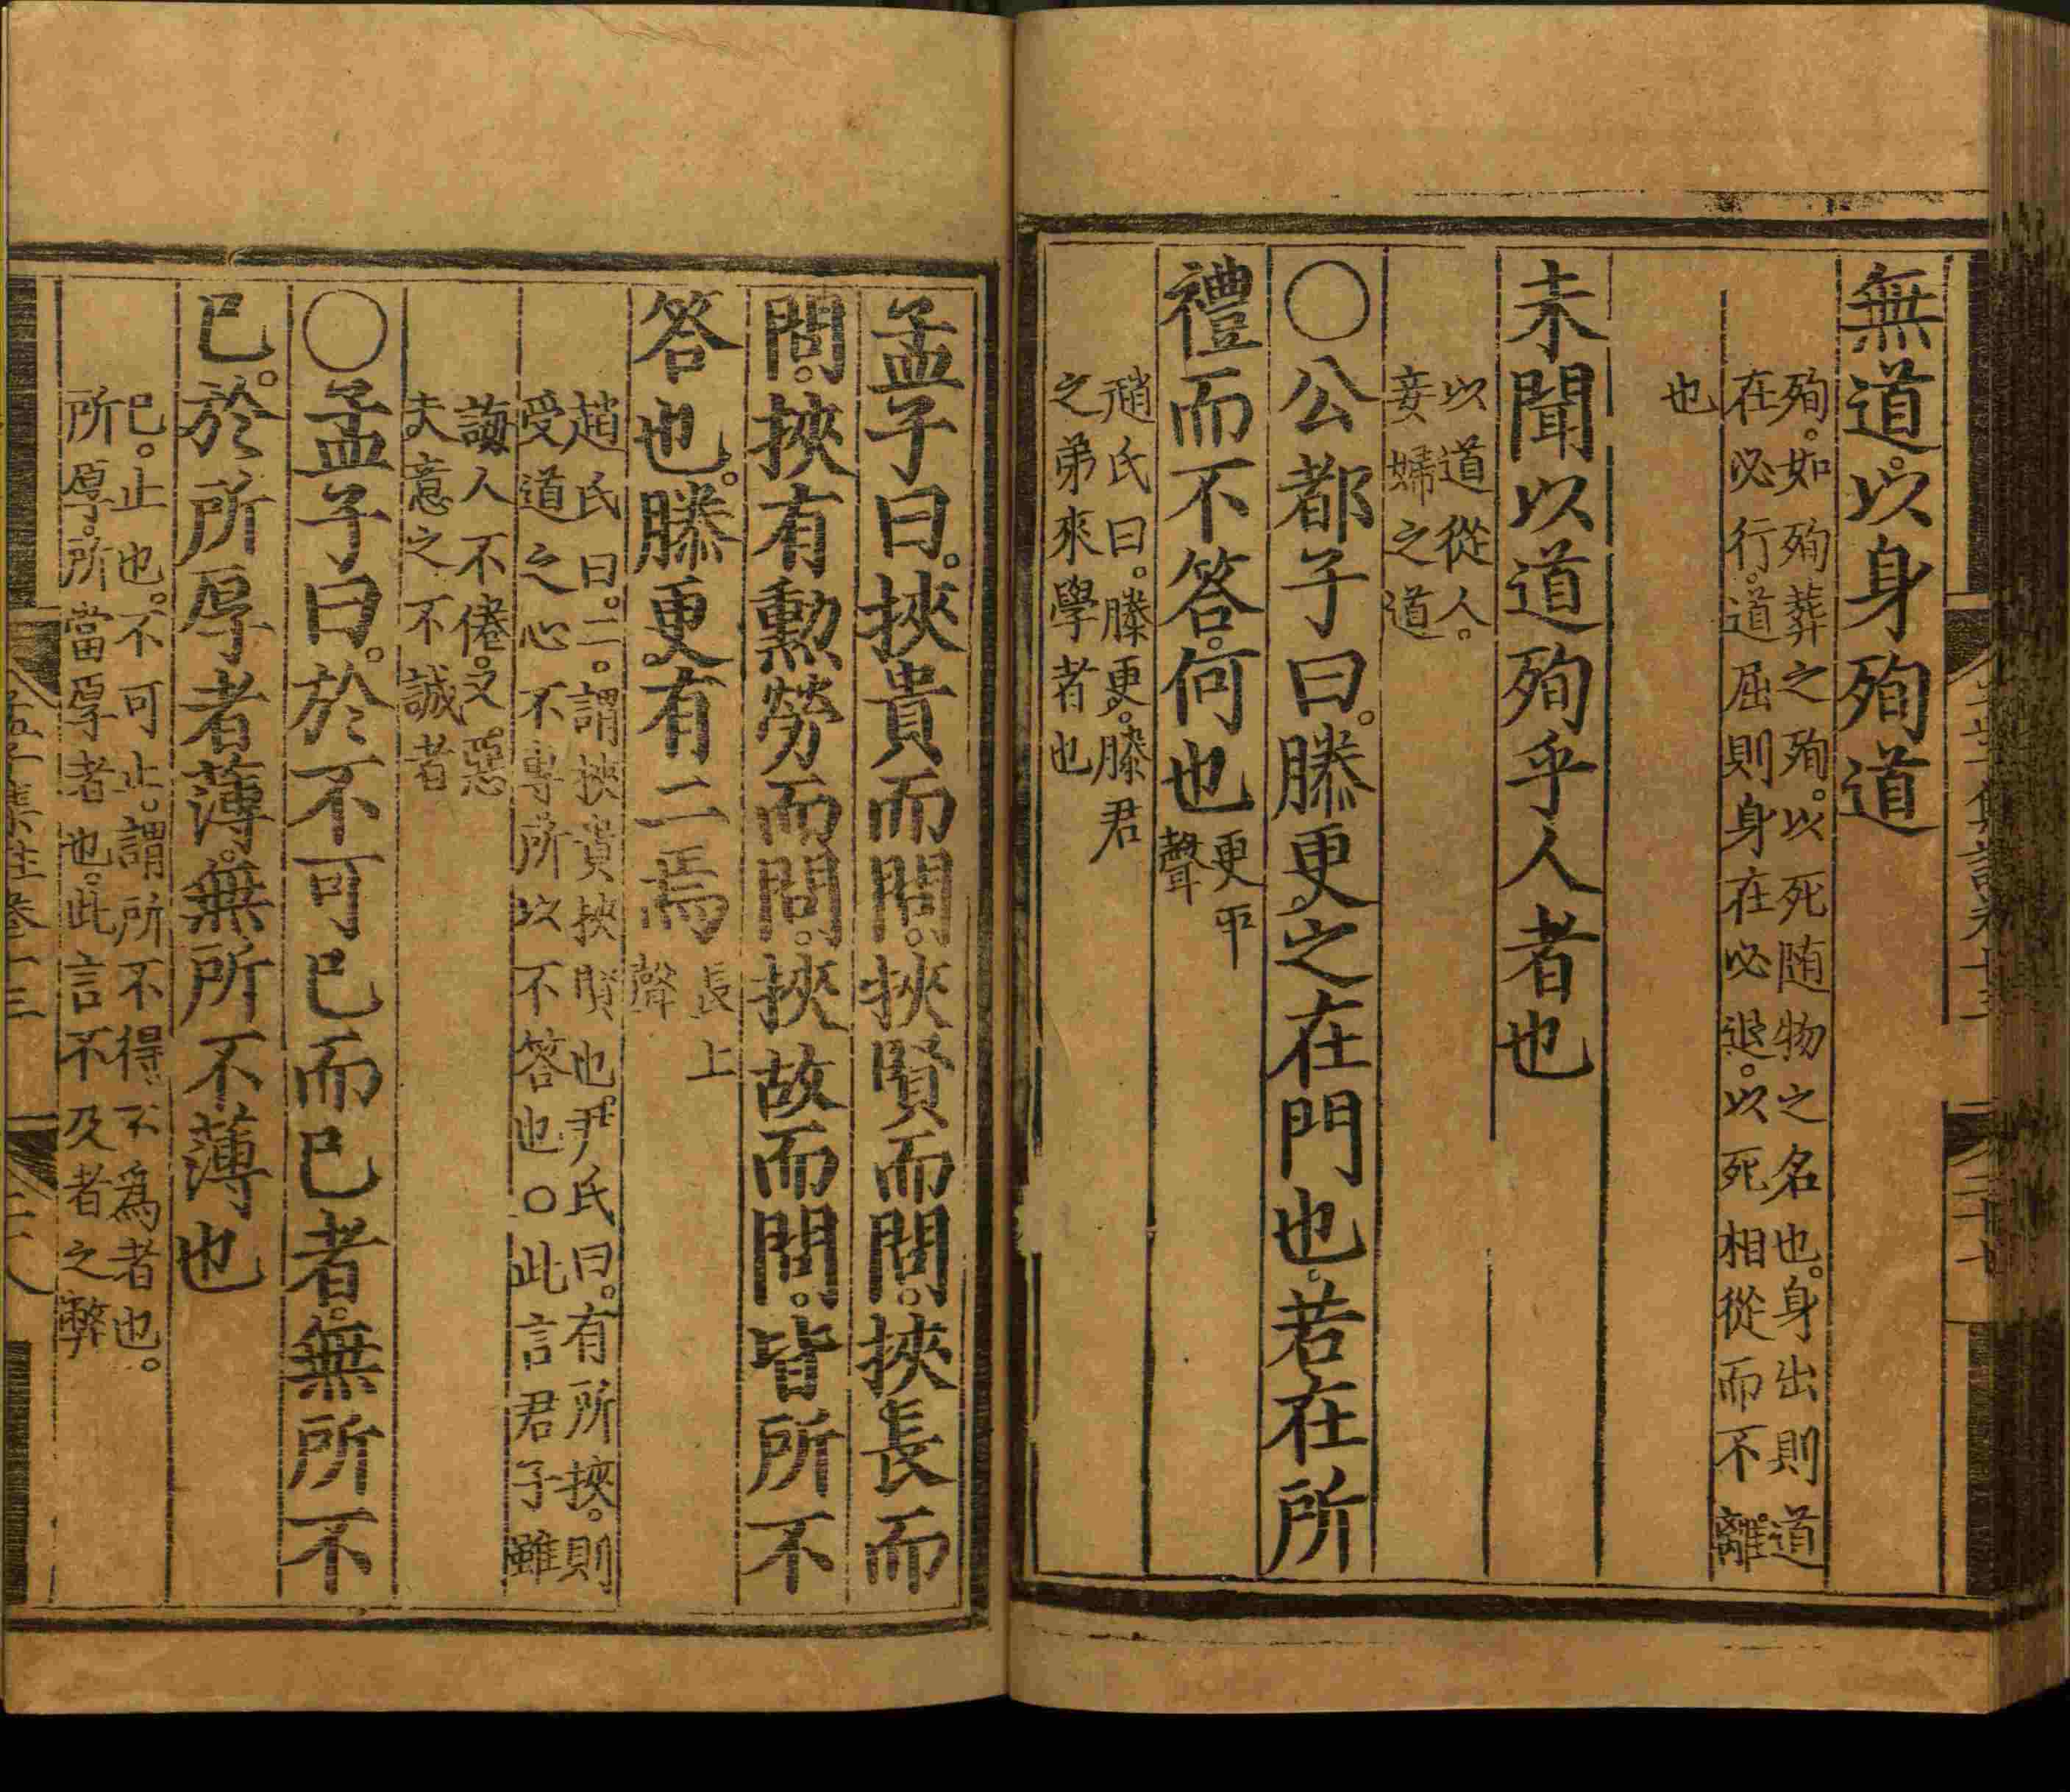 無道以身殉道
殉。如殉葬之殉。以死随物之名也。身出則道
在必行。道屈則身在必退。以死相從而不離
也
未聞以道殉乎人者也
以道從人。
妾婦之道
○公都子曰。滕更之在門也。若在所
禮而不答。何也更平
聲
趙氏曰。滕更。滕君
之弟來學者也
孟子曰。挾貴而問。挾賢而問。挾長而
問。挾有勳勞而問。挾故而問。皆所不
答也。滕更有二焉長上
聲
趙氏曰。二。謂挾貴挾賢也。尹氏曰。有所挾。則
受道之心不專所以不答也○此言君子雖
誨人不倦。又惡
夫意之不誠者
○孟子曰。於不可已而已者。無所不
已。於所厚者薄。無所不薄也
已。止也。不可止。謂所不得不爲者也。
所厚。所當厚者也。此言不及者之弊